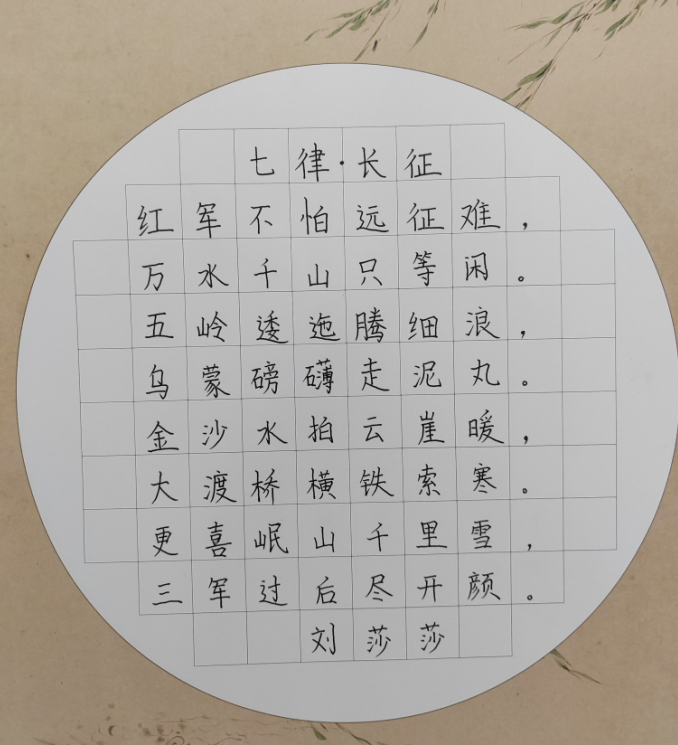 七律·长征
红军不怕远征难，
万水千山只等闲。
五岭逶迤腾细浪，
乌蒙磅礴走泥丸。
金沙水拍云崖暖，
大渡桥横铁索寒。
更喜岷山千里雪，
三军过后尽开颜。
刘莎莎